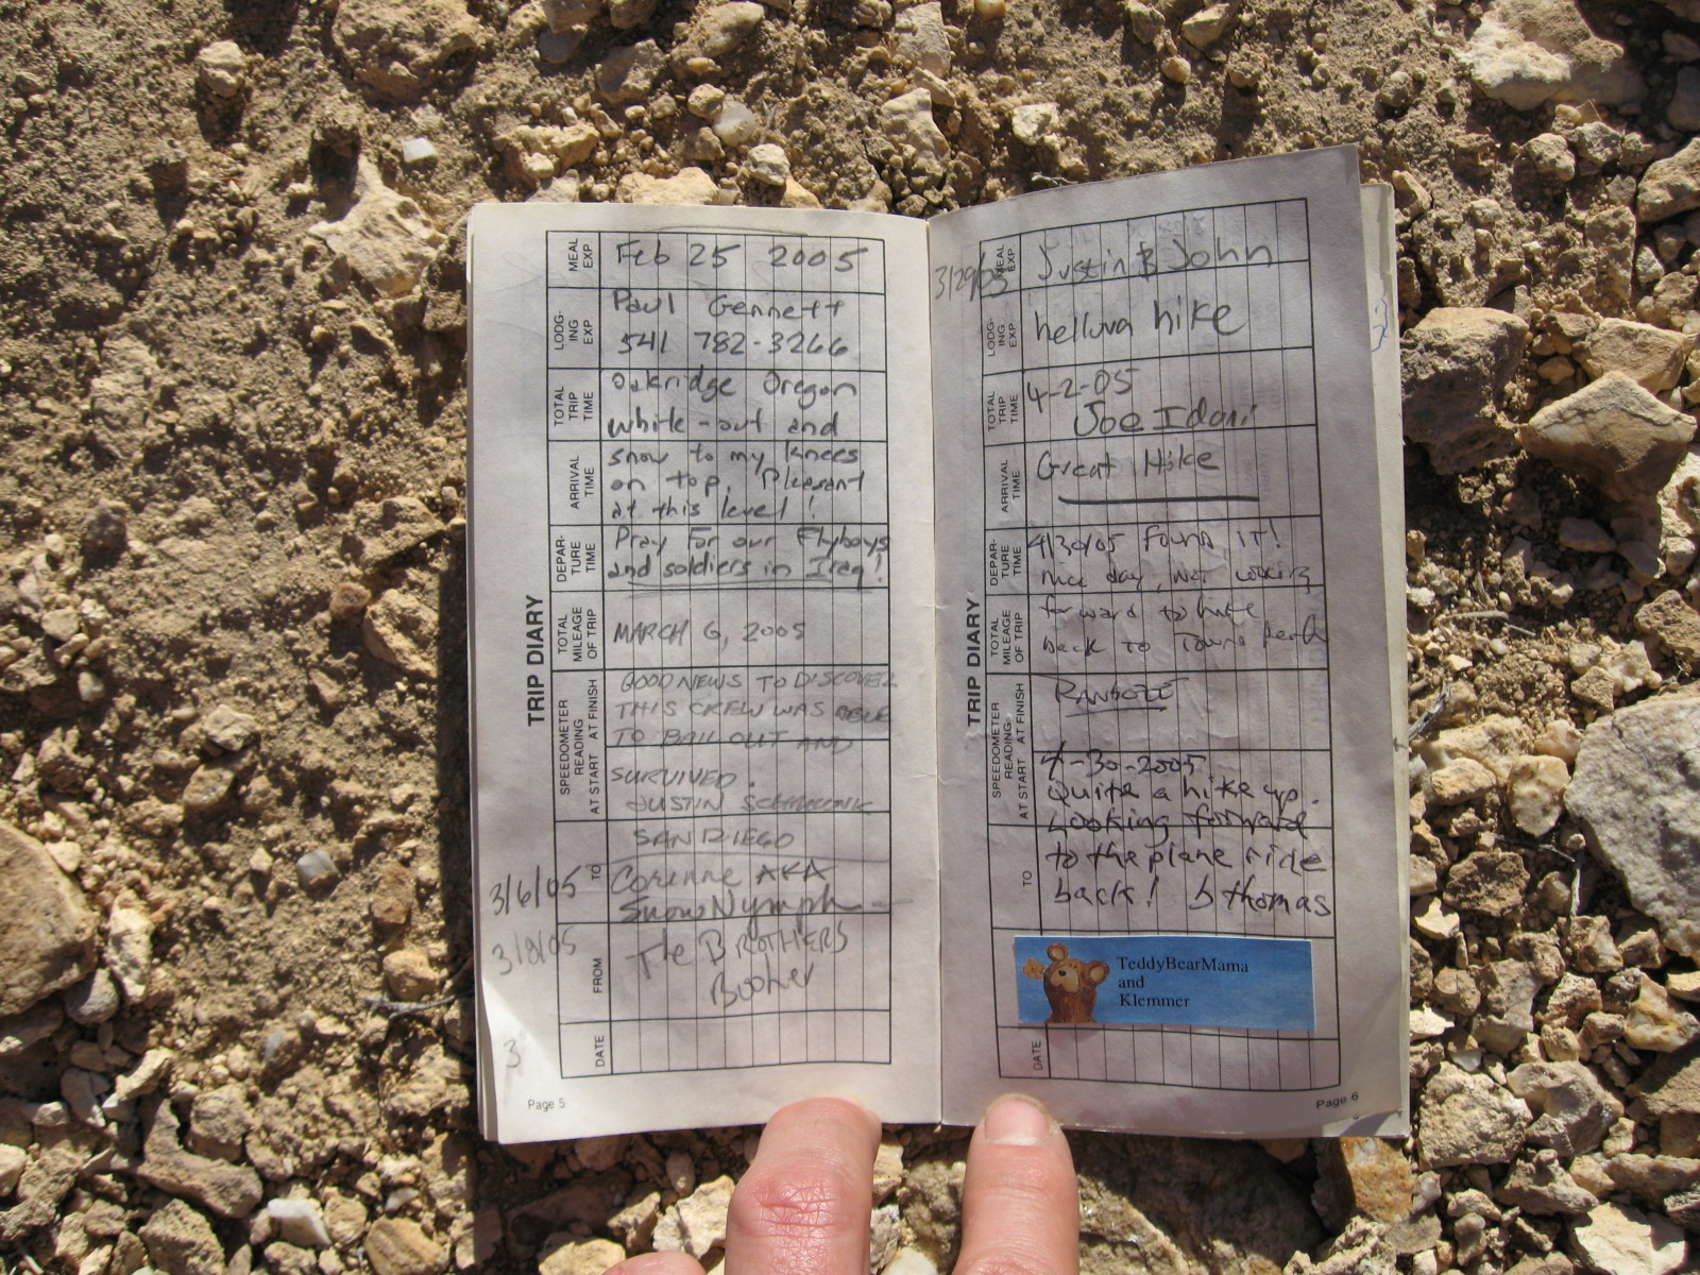 TRIP DIARY
MEAL EXP
Feb 25 2005
LODG-ING EXP
Paul Gennett
541 782-3266
TOTAL TRIP TIME
Oakridge Oregon
white-out and
ARRIVAL TIME
snow to my knees
on top. Pleasant
at this level!
DEPAR-TURE TIME
Pray for our Flyboys
and soldiers in Iraq!
TOTAL MILEAGE OF TRIP
MARCH 6, 2005
SPEEDOMETER READING
AT START AT FINISH
GOOD NEWS TO DISCOVER
THIS CREW WAS ABLE
TO BAIL OUT AND
SURVIVED.
JUSTIN
SAN DIEGO
TO
3/6/05
Corinne AKA
SnowNymph
FROM
The BROTHERS
Booher
DATE
3
Page 5
TRIP DIARY
MEAL EXP
3/29/05
Justin & John
LODG-ING EXP
helluva hike
TOTAL TRIP TIME
4-2-05
Joe
ARRIVAL TIME
Great Hike
DEPAR-TURE TIME
4/30/05 found it!
nice day, not looking
TOTAL MILEAGE OF TRIP
forward to hike
back to Towns
SPEEDOMETER READING
AT START AT FINISH
4-30-2005
Quite a hike up.
Looking forward
TO
to the plane ride
back! b thomas
FROM
TeddyBearMama
and
Klemmer
DATE
Page 6